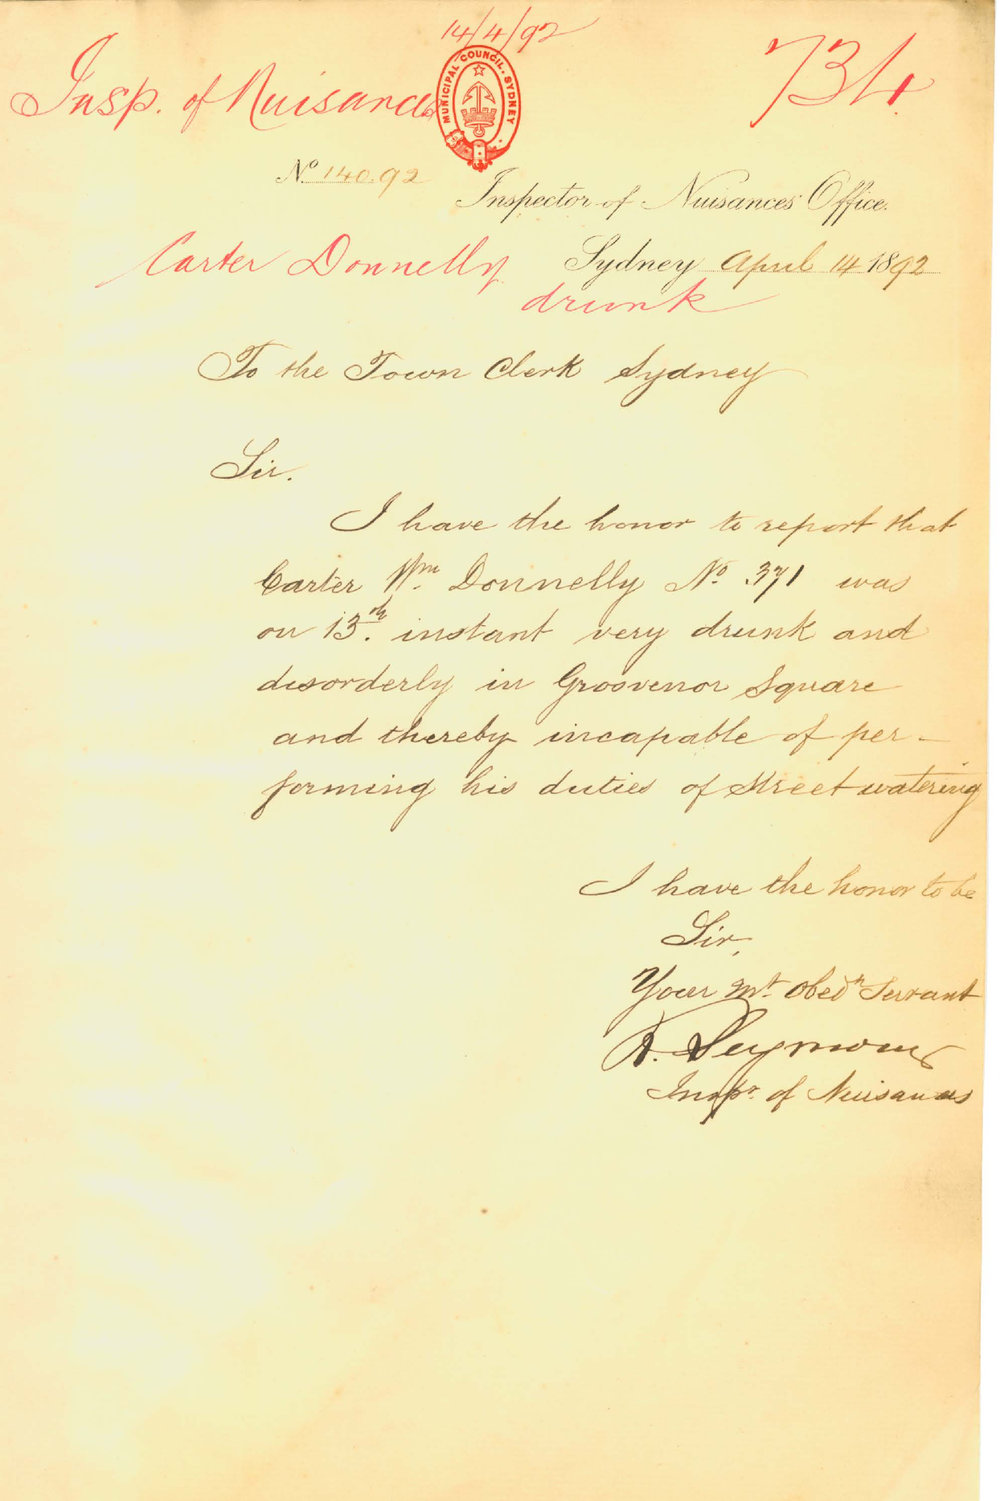 14/4/92
Insp. of Nuisances
734
MUNICIPAL COUNCIL. SYDNEY
No 140.92
Inspector of Nuisances Office.
Carter Donnelly
Sydney April 14 1892
drunk
To the Town Clerk Sydney
Sir.
I have the honor to report that
Carter Wm. Donnelly No. 371 was
on 13th. instant very drunk and
disorderly in Groovenor Square
and thereby incapable of per-
forming his duties of Street watering
I have the honor to be
Sir,
Your Mt. Obedt Servant
R. Seymour
Inspr. of Nuisances